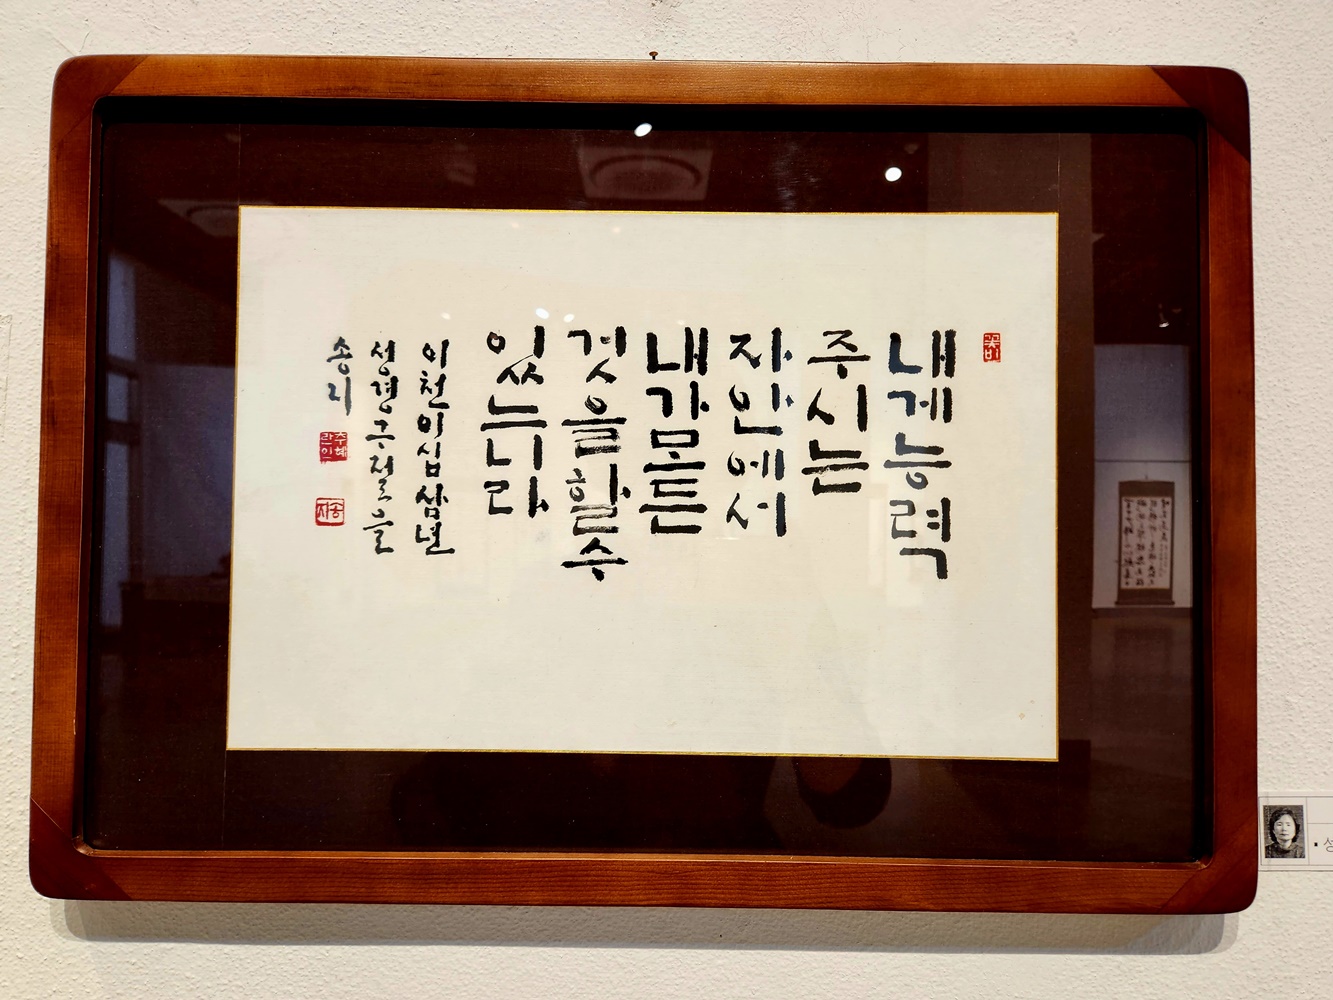 꽃비
내게능력
주시는
자안에서
내가모든
것을할수
있느니라
이천이십삼년
성경구절을
송지
주혜
란인
송지